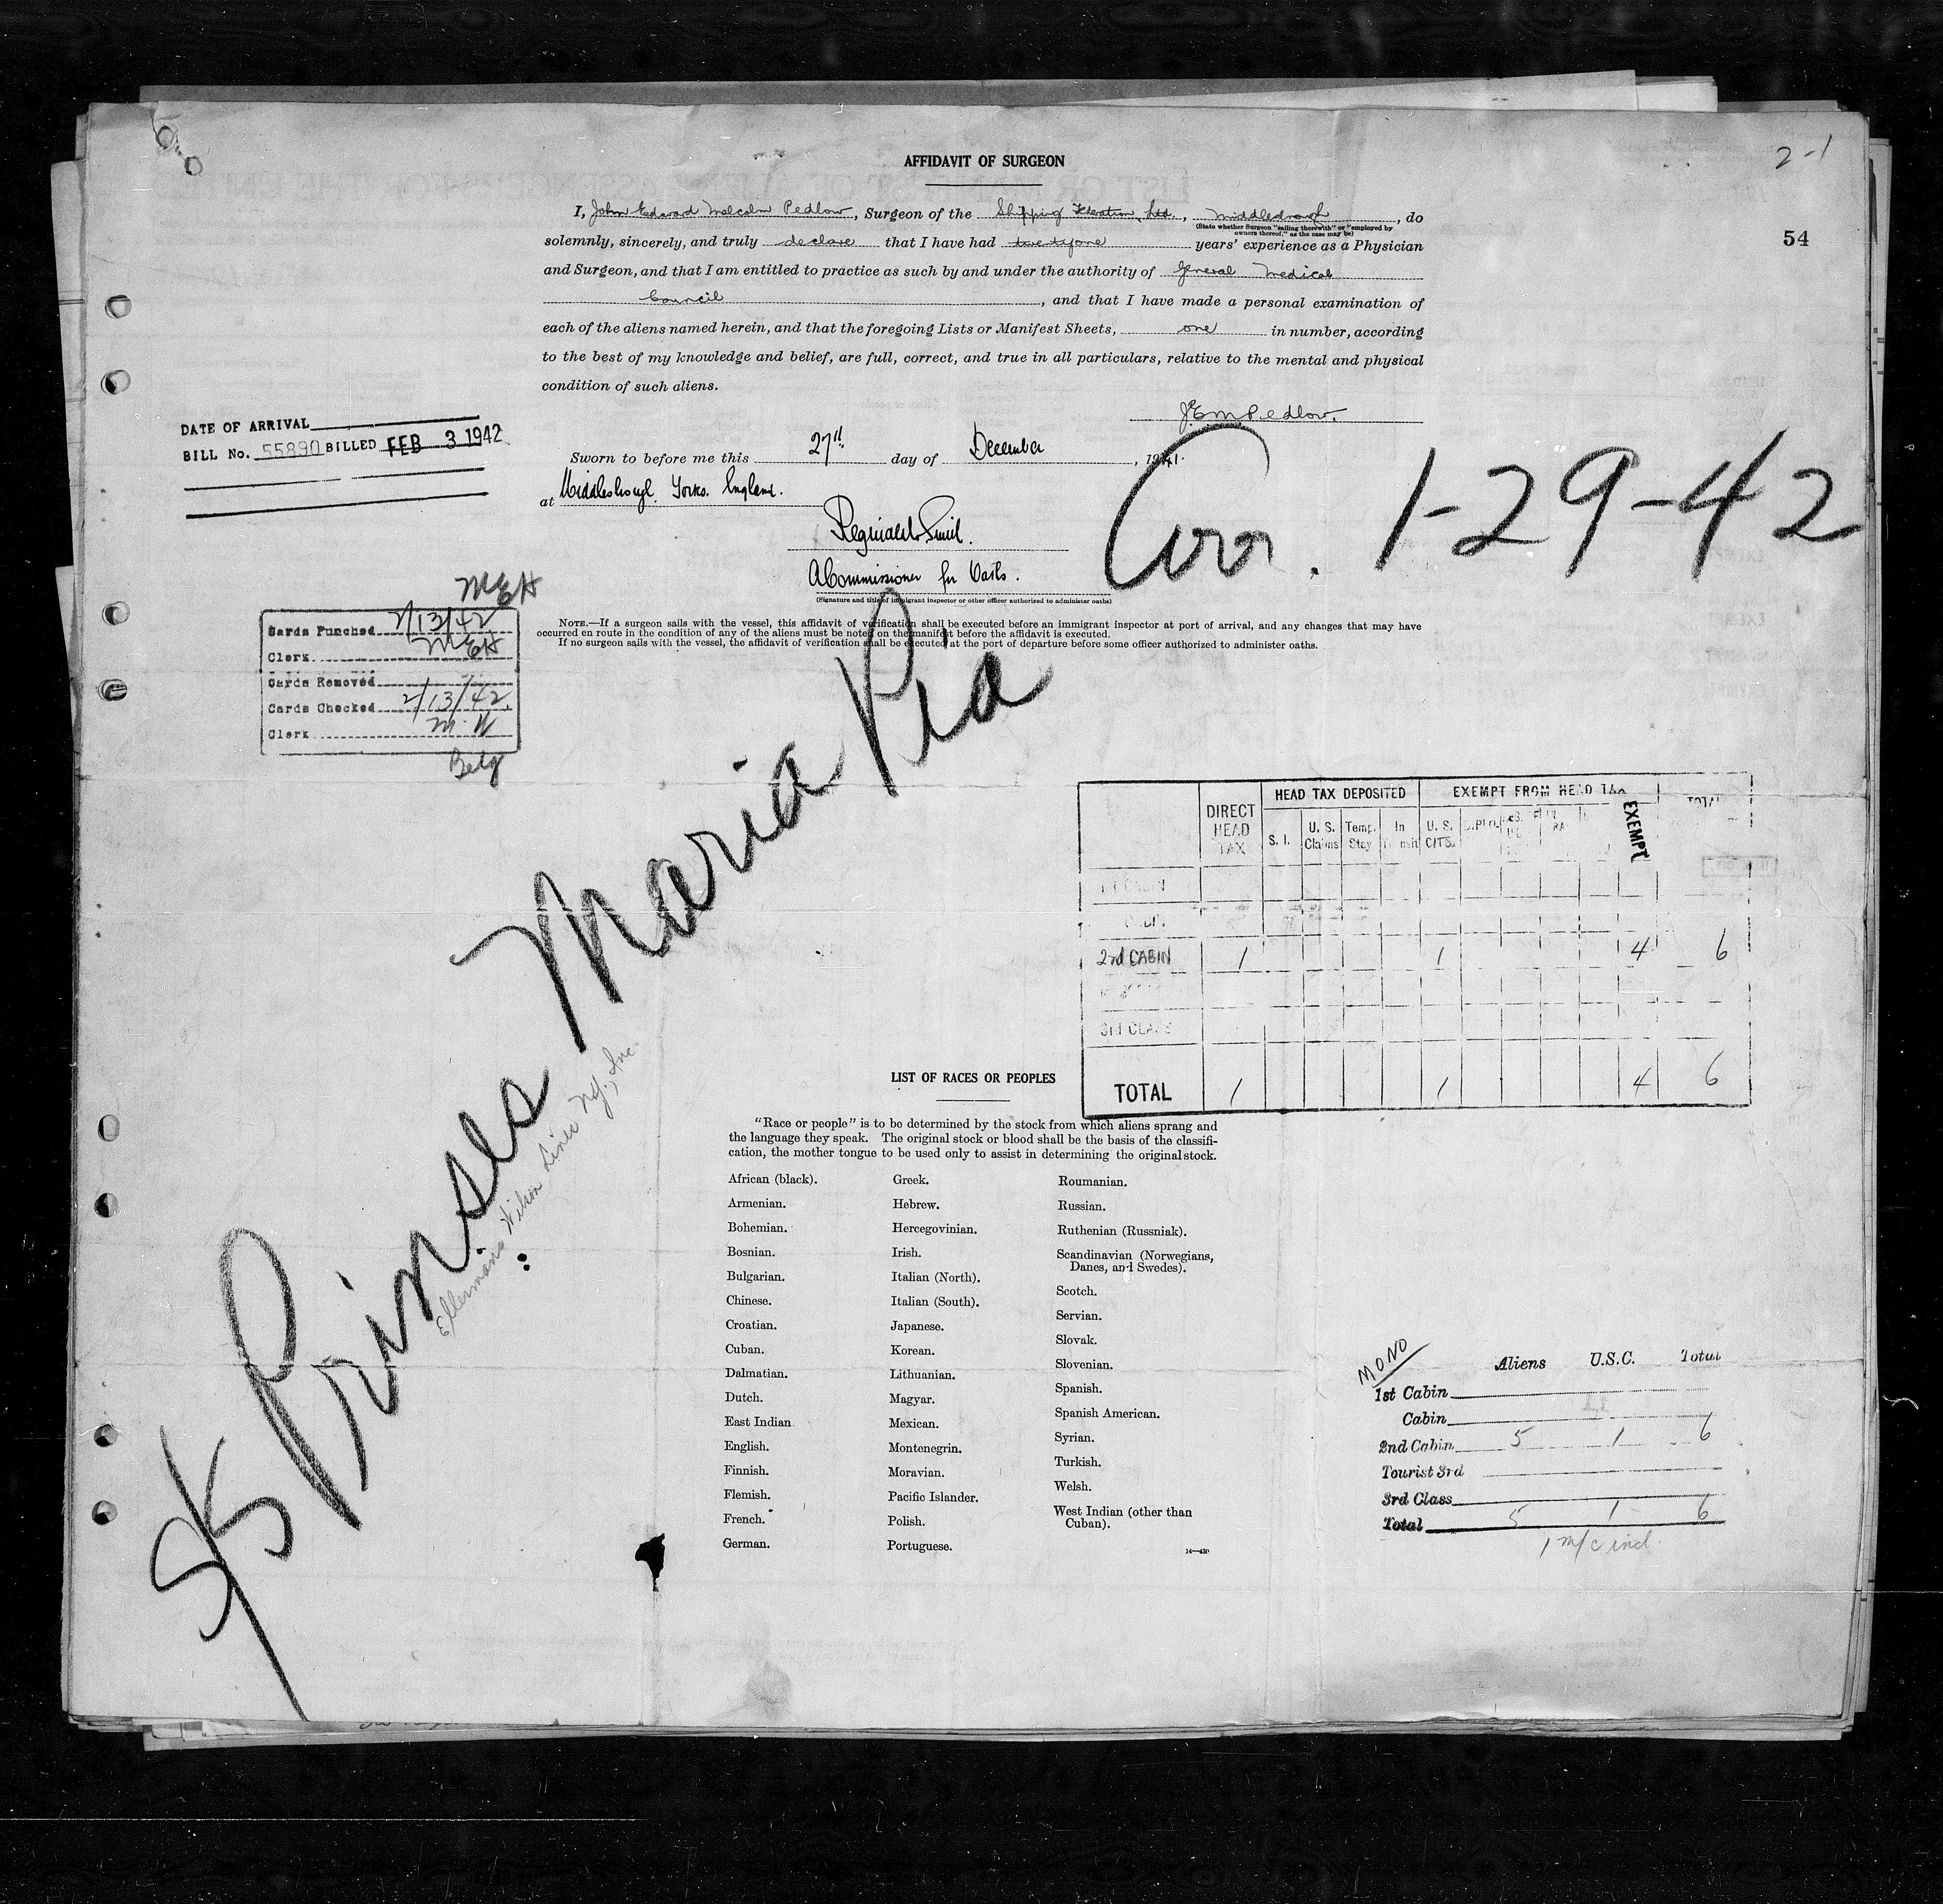 2-1
AFFIDAVIT OF SURGEON
54
I, John Edward Malcolm Pedlow, Surgeon of the Shipping Federation Ltd., Middlesbrough, do
(State whether Surgeon "sailing therewith" or "employed by
owners thereof," as the case may be)
solemnly, sincerely, and truly declare that I have had twentyone years' experience as a Physician
and Surgeon, and that I am entitled to practice as such by and under the authority of General Medical
Council, and that I have made a personal examination of
each of the aliens named herein, and that the foregoing Lists or Manifest Sheets, one in number, according
to the best of my knowledge and belief, are full, correct, and true in all particulars, relative to the mental and physical
condition of such aliens.
J.E.M. Pedlow.
DATE OF ARRIVAL
BILL No. 55890 BILLED FEB 3 1942
Sworn to before me this 27th day of December, 1941.
at Middlesbrough, Yorks. England.
Arr. 1-29-42
Reginald Smith.
A Commissioner for Oaths.
(Signature and title of immigrant inspector or other officer authorized to administer oaths)
NOTE.—If a surgeon sails with the vessel, this affidavit of verification shall be executed before an immigrant inspector at port of arrival, and any changes that may have
occurred en route in the condition of any of the aliens must be noted on the manifest before the affidavit is executed.
If no surgeon sails with the vessel, the affidavit of verification shall be executed at the port of departure before some officer authorized to administer oaths.
MEH
Cards Punched 2/13/42
Clerk MEH
Cards Removed
Cards Checked 2/13/42
Clerk M.W
Belg
S/S Prinses Maria Pia
Ellermans Wilson Line N.Y., Inc.
DIRECT HEAD TAX HEAD TAX DEPOSITED EXEMPT FROM HEAD TAX TOTAL
S. I. U. S. Claims Temp. Stay In Transit U. S. CITS. DIPLO. EXEMPT
1st CABIN
CABIN
2nd CABIN 1 1 4 6
3rd CLASS
TOTAL 1 1 4 6
LIST OF RACES OR PEOPLES
"Race or people" is to be determined by the stock from which aliens sprang and
the language they speak. The original stock or blood shall be the basis of the classifi-
cation, the mother tongue to be used only to assist in determining the original stock.
African (black).
Armenian.
Bohemian.
Bosnian.
Bulgarian.
Chinese.
Croatian.
Cuban.
Dalmatian.
Dutch.
East Indian
English.
Finnish.
Flemish.
French.
German.
Greek.
Hebrew.
Hercegovinian.
Irish.
Italian (North).
Italian (South).
Japanese.
Korean.
Lithuanian.
Magyar.
Mexican.
Montenegrin.
Moravian.
Pacific Islander.
Polish.
Portuguese.
Roumanian.
Russian.
Ruthenian (Russniak).
Scandinavian (Norwegians,
Danes, and Swedes).
Scotch.
Servian.
Slovak.
Slovenian.
Spanish.
Spanish American.
Syrian.
Turkish.
Welsh.
West Indian (other than
Cuban).
MONO
Aliens U.S.C. Total
1st Cabin
Cabin
2nd Cabin 5 1 6
Tourist 3rd
3rd Class
Total 5 1 6
1 m/c incl